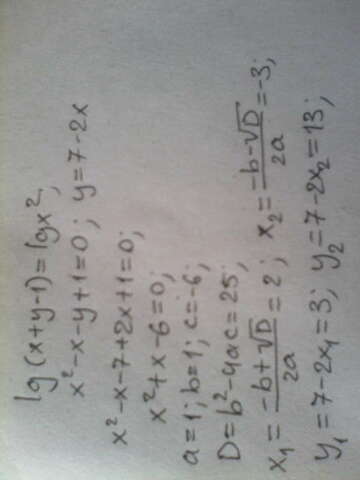 lg(x+y-1)=lgx²;
x²-x-y+1=0; y=7-2x
x²-x-7+2x+1=0;
x²+x-6=0;
a=1; b=1; c=-6;
D=b²-4ac=25;
x₁=(-b+√D)/2a=2; x₂=(-b-√D)/2a=-3;
y₁=7-2x₁=3; y₂=7-2x₂=13;